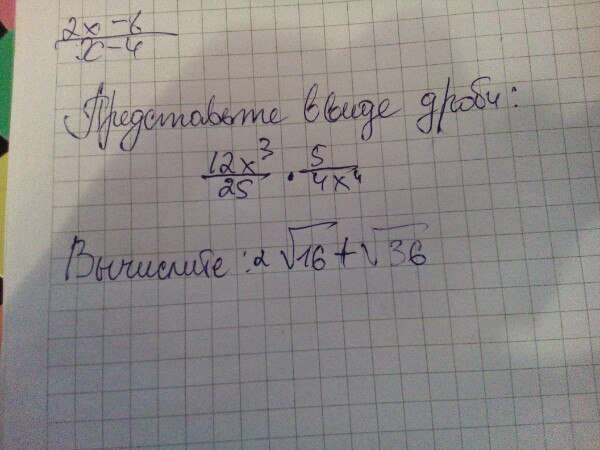 2x-6
x-4
Представьте в виде дроби:
12x³/25 · 5/4x⁴
Вычислите: 2√16+√36